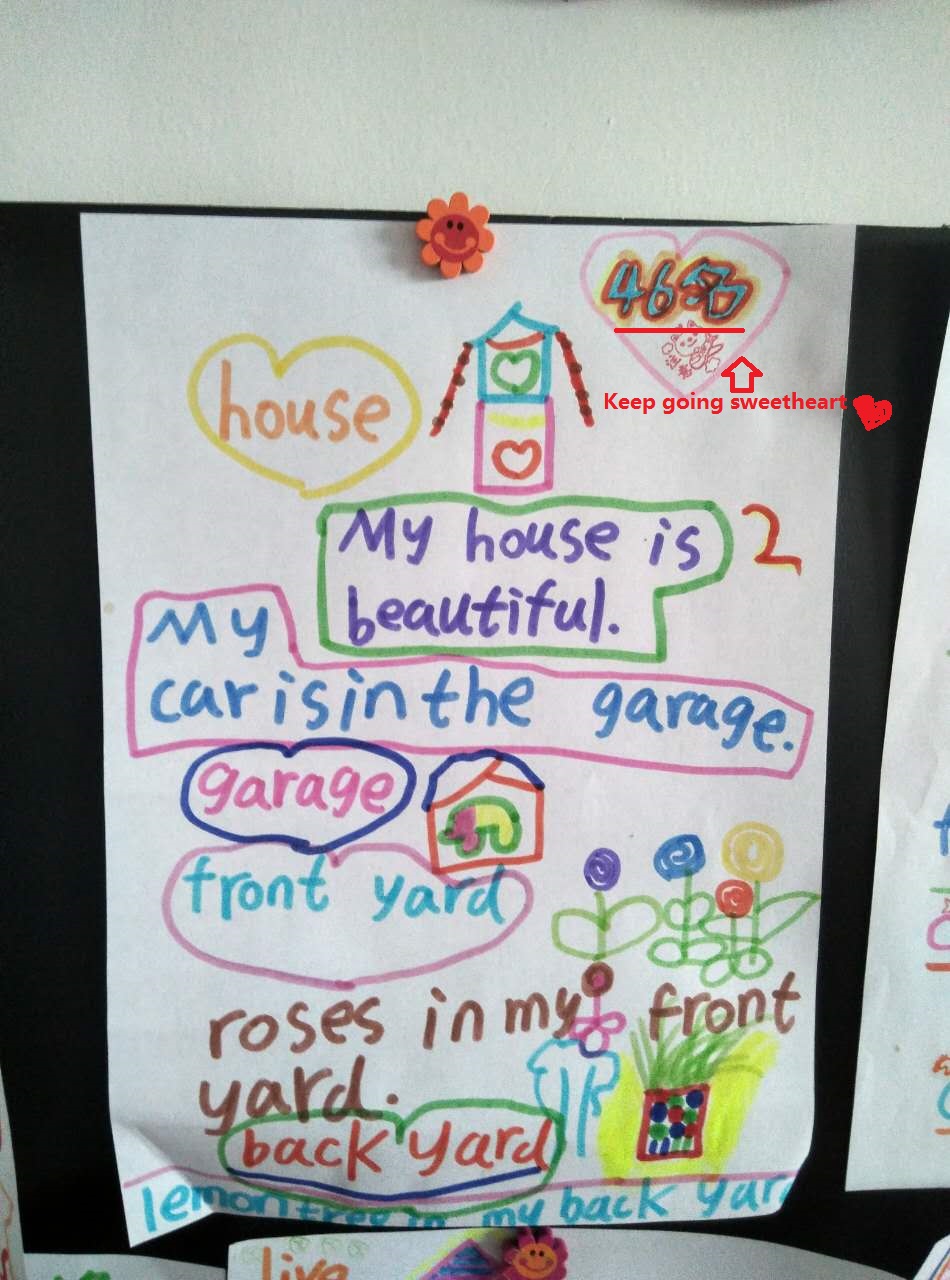 46名
Keep going sweetheart
house
My house is 2
beautiful.
My
car is in the garage.
garage
front yard
roses in my front
yard.
back yard
lemon tree in my back yard
live